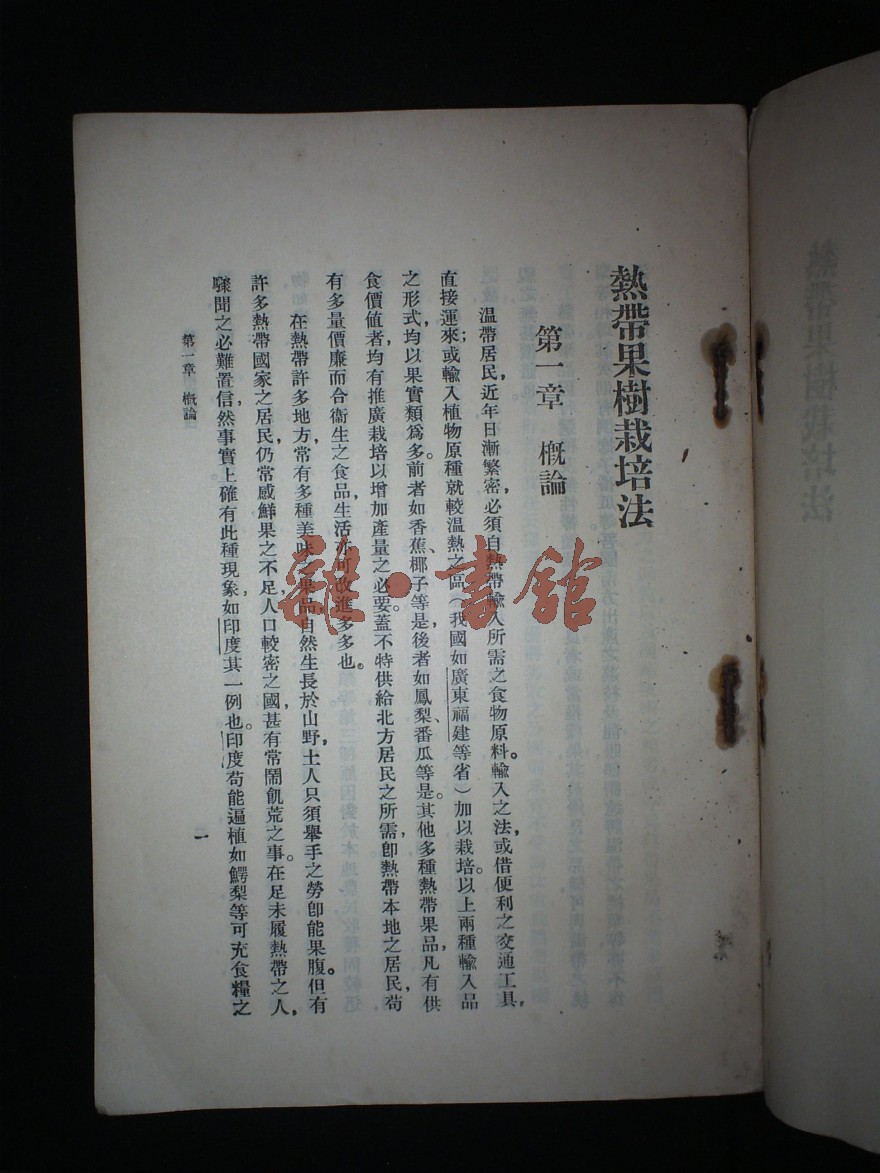 熱帶果樹栽培法
第一章 概論
溫帶居民近年日漸繁密必須自熱帶輸入所需之食物原料。輸入之法，或借便利之交通工具，
直接運來；或輸入植物原種就較溫熱之區（我國如廣東福建等省）加以栽培。以上兩種輸入品
之形式，均以果實類爲多。前者如香蕉、椰子等是。後者如鳳梨番瓜等是。其他多種熱帶果品，凡有供
食價值者，均有推廣栽培以增加產量之必要。蓋不特供給北方居民之所需，卽熱帶本地之居民，苟
有多量價廉而合衞生之食品，生活亦可改進多多也。
在熱帶許多地方，常有多種美味之果品，自然生長於山野，土人只須舉手之勞，卽能果腹。但有
許多熱帶國家之居民仍常感鮮果之不足，人口較密之國，甚有常鬧飢荒之事。在足未履熱帶之人，
驟聞之必難置信，然事實上確有此種現象，如印度其一例也。印度苟能遍植如鰐梨等可充食糧之
第一章 概論
一
雜·書館
熱帶果樹栽培法